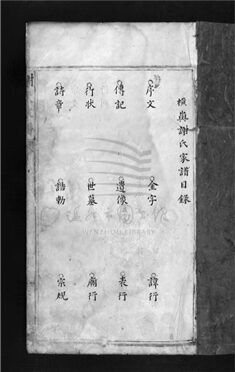 謝氏家譜目錄
序文 金字 諱行
傳記 遺像 表行
行狀 世墓 廟行
詩章 誥勅 宗規
WENZHOU LIBRARY